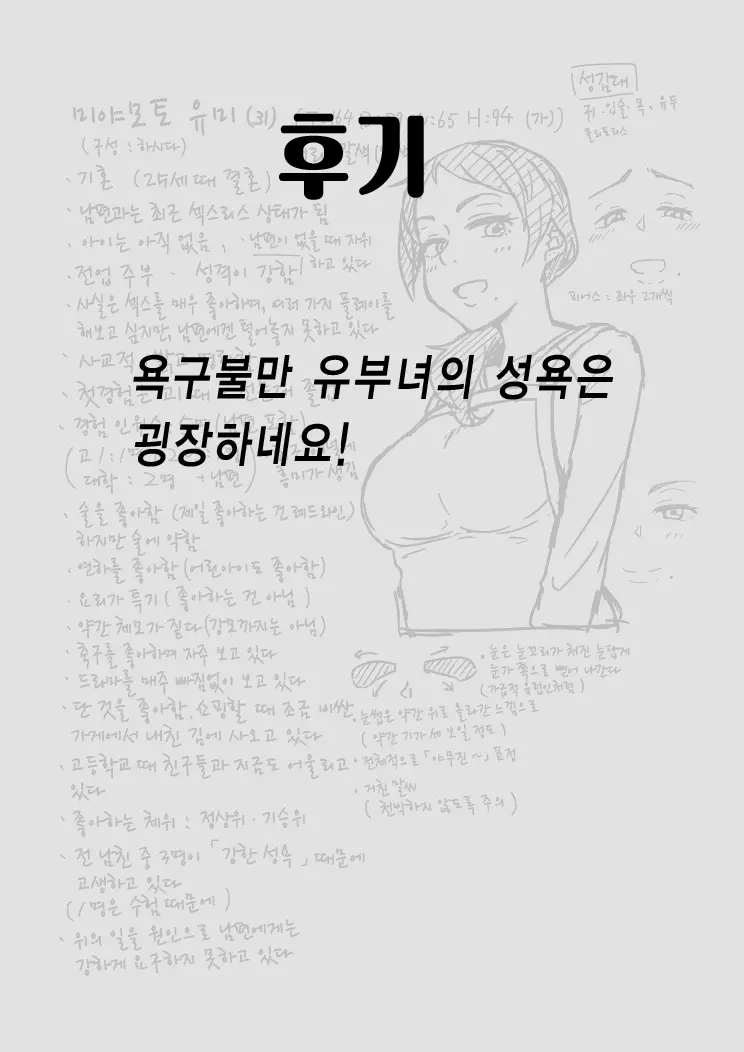 후기
욕구불만 유부녀의 성욕은
굉장하네요!
미야모토 유미 (31)
H:94 (가))
(구성 : 하시다)
성감대
귀·입술·목·유두
클리토리스
· 기혼 (25세 때 결혼)
· 남편과는 최근 섹스리스 상태가 됨
· 아이는 아직 없음, · 남편이 없을 때 자위
하고 있다
· 전업 주부 · 성격이 강함
· 사실은 섹스를 매우 좋아하며, 여러 가지 플레이를
해보고 싶지만, 남편에겐 털어놓지 못하고 있다
피어스 : 좌우 2개씩
· 사교적
흥미가 생김
· 술을 좋아함 (제일 좋아하는 건 레드와인)
하지만 술에 약함
· 연하를 좋아함 (어린아이도 좋아함)
· 요리가 특기 (좋아하는 건 아님)
· 약간 체모가 짙다 (강모까지는 아님)
· 축구를 좋아하며 자주 보고 있다
· 드라마를 매주 빠짐없이 보고 있다
· 단 것을 좋아함, 쇼핑할 때 조금 비싼
가게에서 내친 김에 사오고 있다
· 고등학교 때 친구들과 지금도 어울리고
있다
· 좋아하는 체위 : 정상위·기승위
· 전 남친 중 3명이 「강한 성욕」 때문에
고생하고 있다
(1명은 수험 때문에)
· 위의 일을 원인으로 남편에게는
강하게 요구하지 못하고 있다
· 눈은 눈꼬리가 처진 눈답게
눈가 쪽으로 뻗어 나간다
(가급적 유럽인처럼)
· 눈썹은 약간 위로 올라간 느낌으로
(약간 기가 세 보일 정도)
· 전체적으로 「야무진~」 표정
· 거친 말씨
(천박하지 않도록 주의)